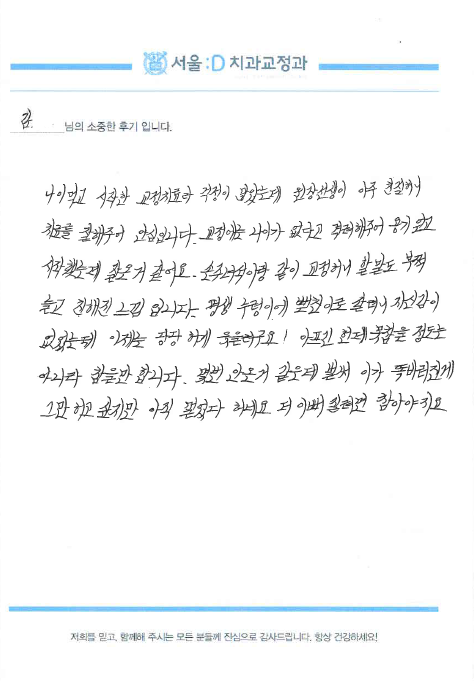 서울:D 치과교정과
김. 님의 소중한 후기 입니다.
나이먹고 시작한 교정치료라 걱정이 많았는데 원장선생이 아주 친절하니
치료를 잘해주어 안심입니다. 교정에는 나이가 없다고 격려해주어 용기 얻고
시작했는데 잘한거 같아요. 손주녀석이랑 같이 교정하니 할말도 부쩍
늘고 친해진 느낌 입니다. 평생 누렁이에 뻐드렁이로 살며 자신감이
없었는데 이제는 당당 하게 웃을라구요! 아프긴 한데 못참을 정도는
아니라 참을만 합니다. 몇번 안온거 같은데 벌써 이가 똑바라진게
그만 하고 싶지만 아직 멀었다 하네요 더 이뻐질려면 참아야지요
저희를 믿고, 함께해 주시는 모든 분들께 진심으로 감사드립니다. 항상 건강하세요!